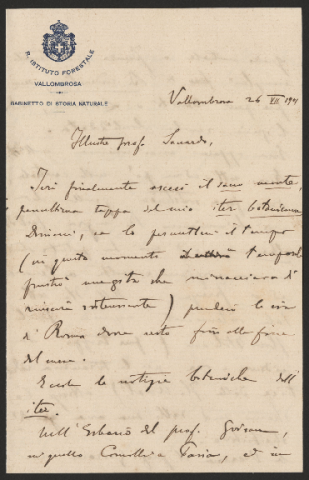 R. ISTITUTO FORESTALE
VALLOMBROSA
GABINETTO DI STORIA NATURALE
Vallombrosa 26 VII 1901
Illustre prof. Saccardo,
Ieri finalmente ascesi il sacro monte,
penultima tappa del mio iter botanicum
Domani, se lo permetterà il tempo
(in questo momento
che minacciava di
) prenderò la via
di Roma dove resto fino alla fine
del mese.
Eccole le notizie botaniche dell'
iter.
Nell'Erbario del prof.
in quello Comolli a Pavia, ed in